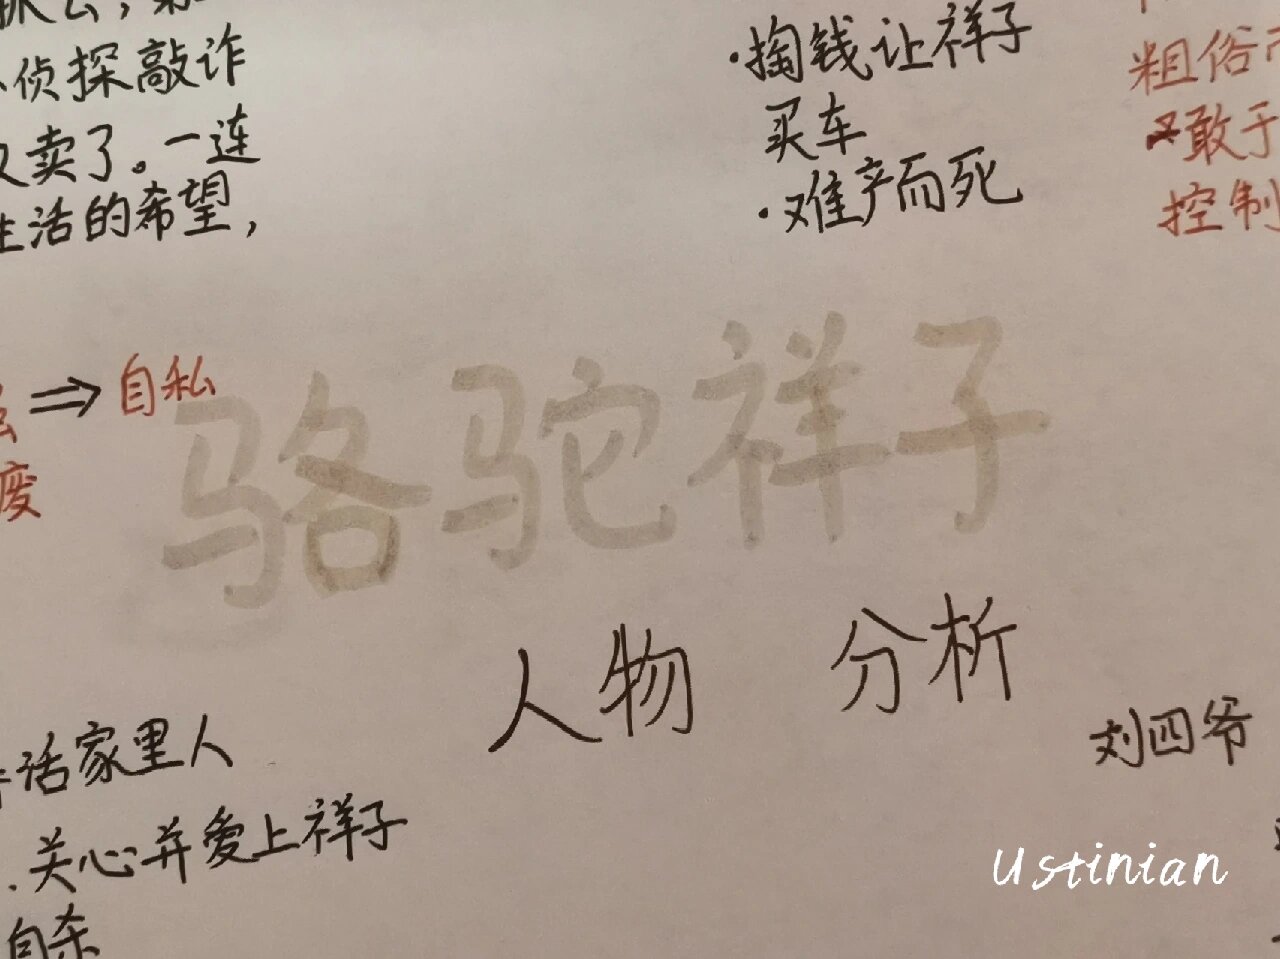 侦探敲诈
卖了。一连
生活的希望，
⇒自私
废
掏钱让祥子
买车
难产而死
粗俗
敢于
控制
骆驼祥子
人物 分析
活家里人
关心并爱上祥子
自杀
刘四爷
Ustinian